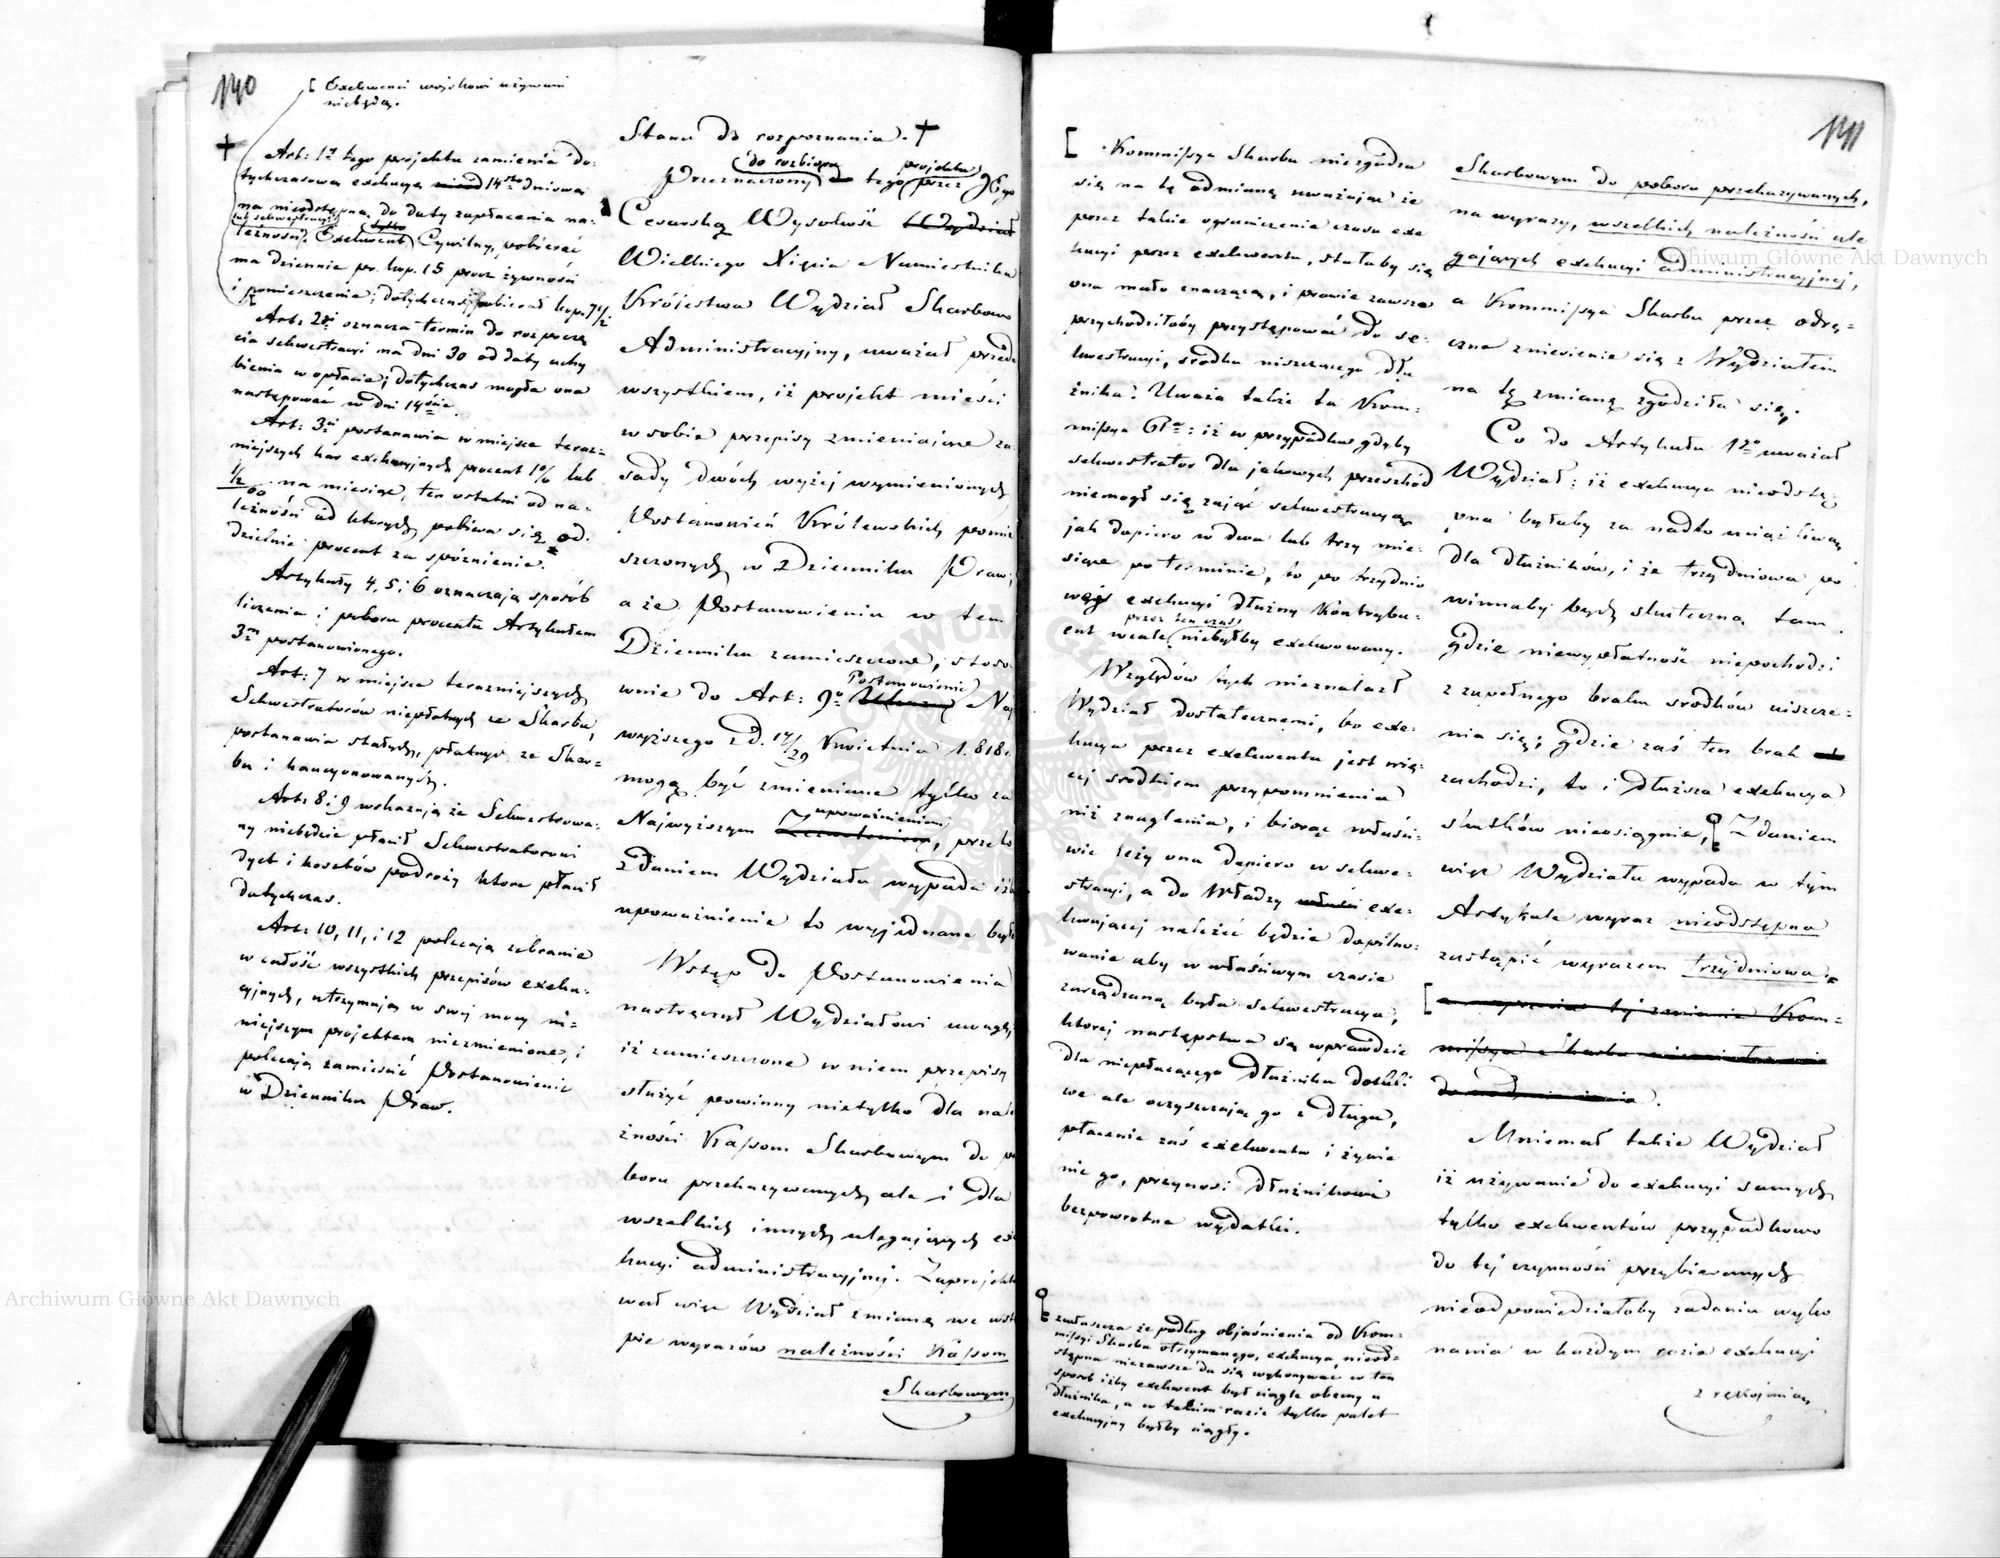 140
[ Exekwenci wojskowi używani
niebędą.
+
Art: 1y tego projektu zamienia do-
tychczasową exekucyą 14sto dniową
na nieodstępną do daty zapłacenia na-
lub sekwestracyi
leżności. Exekwent tylko Cywilny, pobierać
ma dziennie po kop. 15 prócz żywności
i pomieszczenia; dotychczas pobierał kop. 7 1/2
Art: 2gi oznacza termin do rozpoczę
cia sekwestracyi na dni 30 od daty uchy
bienia w opłacie; dotychczas mogła ona
następować w dni 14ście.
Art: 3i postanawia w miejsce teraz-
niejszych kar exekucyjnych procent 1% lub
1/2 00 na miesiąc, ten ostatni od na-
leżności od których pobiera się od-
dzielnie procent za spóźnienie.
Artykuły 4, 5 i 6 oznaczają sposób
liczenia i poboru procentu Artykułem
3m postanowionego.
Art: 7 w miejsce teraźniejszych
Sekwestratorów niepłatnych ze Skarbu,
postanawia stałych, płatnych ze Skar-
bu i kaucyonowanych.
Art: 8 i 9 wskazują że Sekwestrowa-
ny niebędzie płacił Sekwestratorowi
dyet i kosztów podróży które płacił
dotychczas.
Art: 10, 11, i 12 polecają zebranie
w całość wszystkich przepisów exeku-
cyjnych, utrzymują w swej mocy ni-
niejszym projektem niezmienione, i
polecają zamieścić Postanowienie
w Dzienniku Praw.
Stanu do rozpoznania. +
do rozbioru projektu
Przeznaczony tego przez JEgo
Cesarską Wysokość Wydział
Wielkiego Xięcia Namiestnika
Królestwa Wydział Skarbowo
Administracyjny, uważał przede
wszystkiem, iż projekt mieści
w sobie przepisy zmieniające za
sady dwóch wyżej wymienionych
Postanowień Królewskich pomie
szczonych w Dzienniku Praw;
a że Postanowienia w tem
Dzienniku zamieszczone, stoso
Postanowienia
wnie do Art: 9o Ukazu Naj
wyższego z d. 17/29 Kwietnia 1818 r.
mogą być zmieniane tylko za
upoważnieniem
Najwyższym Zezwoleniem, przeto
zdaniem Wydziału wypada iżb
upoważnienie to wyjednane było
Wstęp do Postanowienia
nastręczył Wydziałowi uwagę,
iż zamieszczone w niem przepisy
służyć powinny nietylko dla nale
żności Kassom Skarbowym do po
boru przekazywanych ale i dla
wszelkich innych ulegających exe
kucyi administracyjnej. Zaprojekto
wał więc Wydział zmianę we wstę
pie wyrazów należności Kassom
Skarbowym
141
[ Kommissya Skarbu niezgadza
się na tę odmianę uważając że
przez takie ograniczenie czasu exe
kucyi przez exekwenta, stałaby się
ona mało znaczącą, i prawie zawsze
przychodziłoby przystępować do se-
kwestracyi, środka niszczącego dłu
żnika. Uważa także ta Kom-
missya : iż w przypadku gdyby
sekwestrator dla jakowych przeszkód
niemógł się zająć sekwestracyą
jak dopiero w dwa lub trzy mie-
siące po terminie, to po trzydnio
wej exekucyi dłużny Kontrybu-
przez ten czas
ent wcale niebyłby exekwowany.
Względów tych nieznalazł
Wydział dostatecznemi, bo exe-
kucya przez exekwenta jest wię-
cej środkiem przypomnienia
niż znaglenia, i biorąc właści-
wie leży ona dopiero w sekwe-
stracyi, a do Władzy exe-
kwującej należeć będzie dopilno-
wanie aby w właściwym czasie
zarządzaną była sekwestracya,
której następstwa są wprawdzie
dla niepłacącego dłużnika dotkli
we ale oczyszczają go z długu,
płacenie zaś exekwenta i żywie
nie go, przynosi dłużnikowi
bezpowrotne wydatki.
zwłaszcza że podług objaśnienia od Kom-
missyi Skarbu otrzymanego, exekucya nieod-
stępna niezawsze da się wykonywać w ten
sposób iżby exekwent był ciągle obecny u
dłużnika, a w takim razie tylko palet
exekucyjny byłby ciągły.
Skarbowym do poboru przekazywanych,
na wyrazy, wszelkich należności ule
gających exekucyi administracyjnej,
a Kommissya Skarbu przez odrę-
czne zniesienie się z Wydziałem
na tę zmianę zgodziła się.
Co do Artykułu 1go uważał
Wydział: iż exekucya nieodstę-
pna byłaby za nadto uciążliwą
dla dłużników, i że trzydniowa po
winnaby być skuteczną tam
gdzie niewypłatność niepochodzi
z zupełnego braku środków uiszcze-
nia się; gdzie zaś ten brak
zachodzi, to i dłuższa exekucya
skutków nieosiągnie, Zdaniem
więc Wydziału wypada w tym
Artykule wyraz nieodstępna
zastąpić wyrazem trzydniowa.
[ a przeciw tej zmianie Kom-
missya Skarbu niemiała nic
do nadmienienia.
Mniemał także Wydział
iż używanie do exekucyi samych
tylko exekwentów przypadkowo
do tej czynności przybieranych
nieodpowiedziałoby zadaniu wyko
nania w każdym razie exekucyi
z rękojmią
Archiwum Główne Akt Dawnych
Archiwum Główne Akt Dawnych
ARCHIWUM GŁÓWNE AKT DAWNYCH